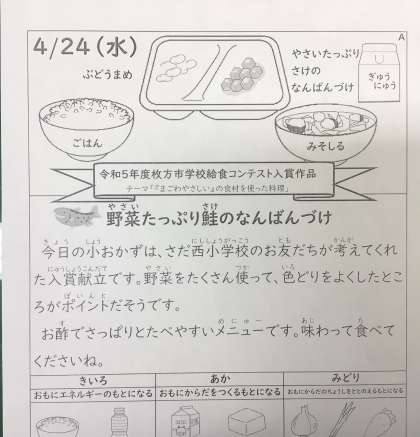 4/24(水)
ぶどうまめ
やさいたっぷり
さけの
なんばんづけ
ぎゅう
にゅう
A
ごはん
みそしる
令和5年度枚方市学校給食コンテスト入賞作品
テーマ「『まごわやさしい』の食材を使った料理」
野菜たっぷり鮭のなんばんづけ
今日の小おかずは、さだ西小学校のお友だちが考えてくれ
た入賞献立です。野菜をたくさん使って、色どりをよくしたとこ
ろがポイントだそうです。
お酢でさっぱりとたべやすいメニューです。味わって食べて
くださいね。
きいろ
あか
みどり
おもにエネルギーのもとになる
おもにからだをつくるもとになる
おもにからだのちょうしをととのえるもとになる